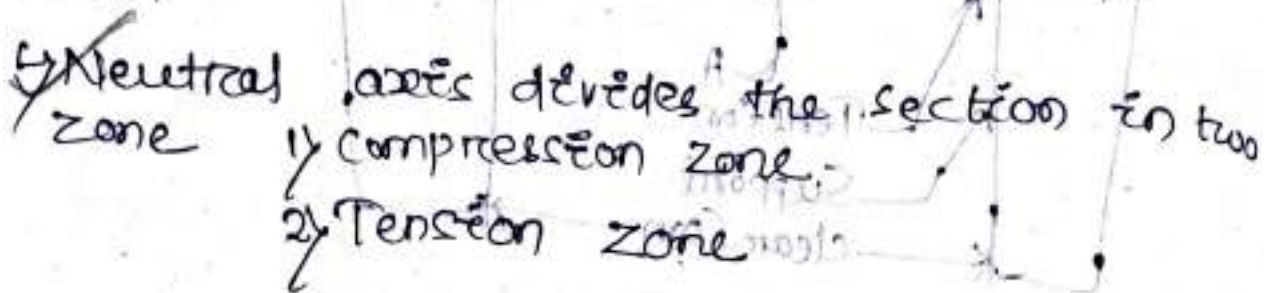 Neutral axis divides the section in two
zone 1) Compression zone.
2) Tension zone